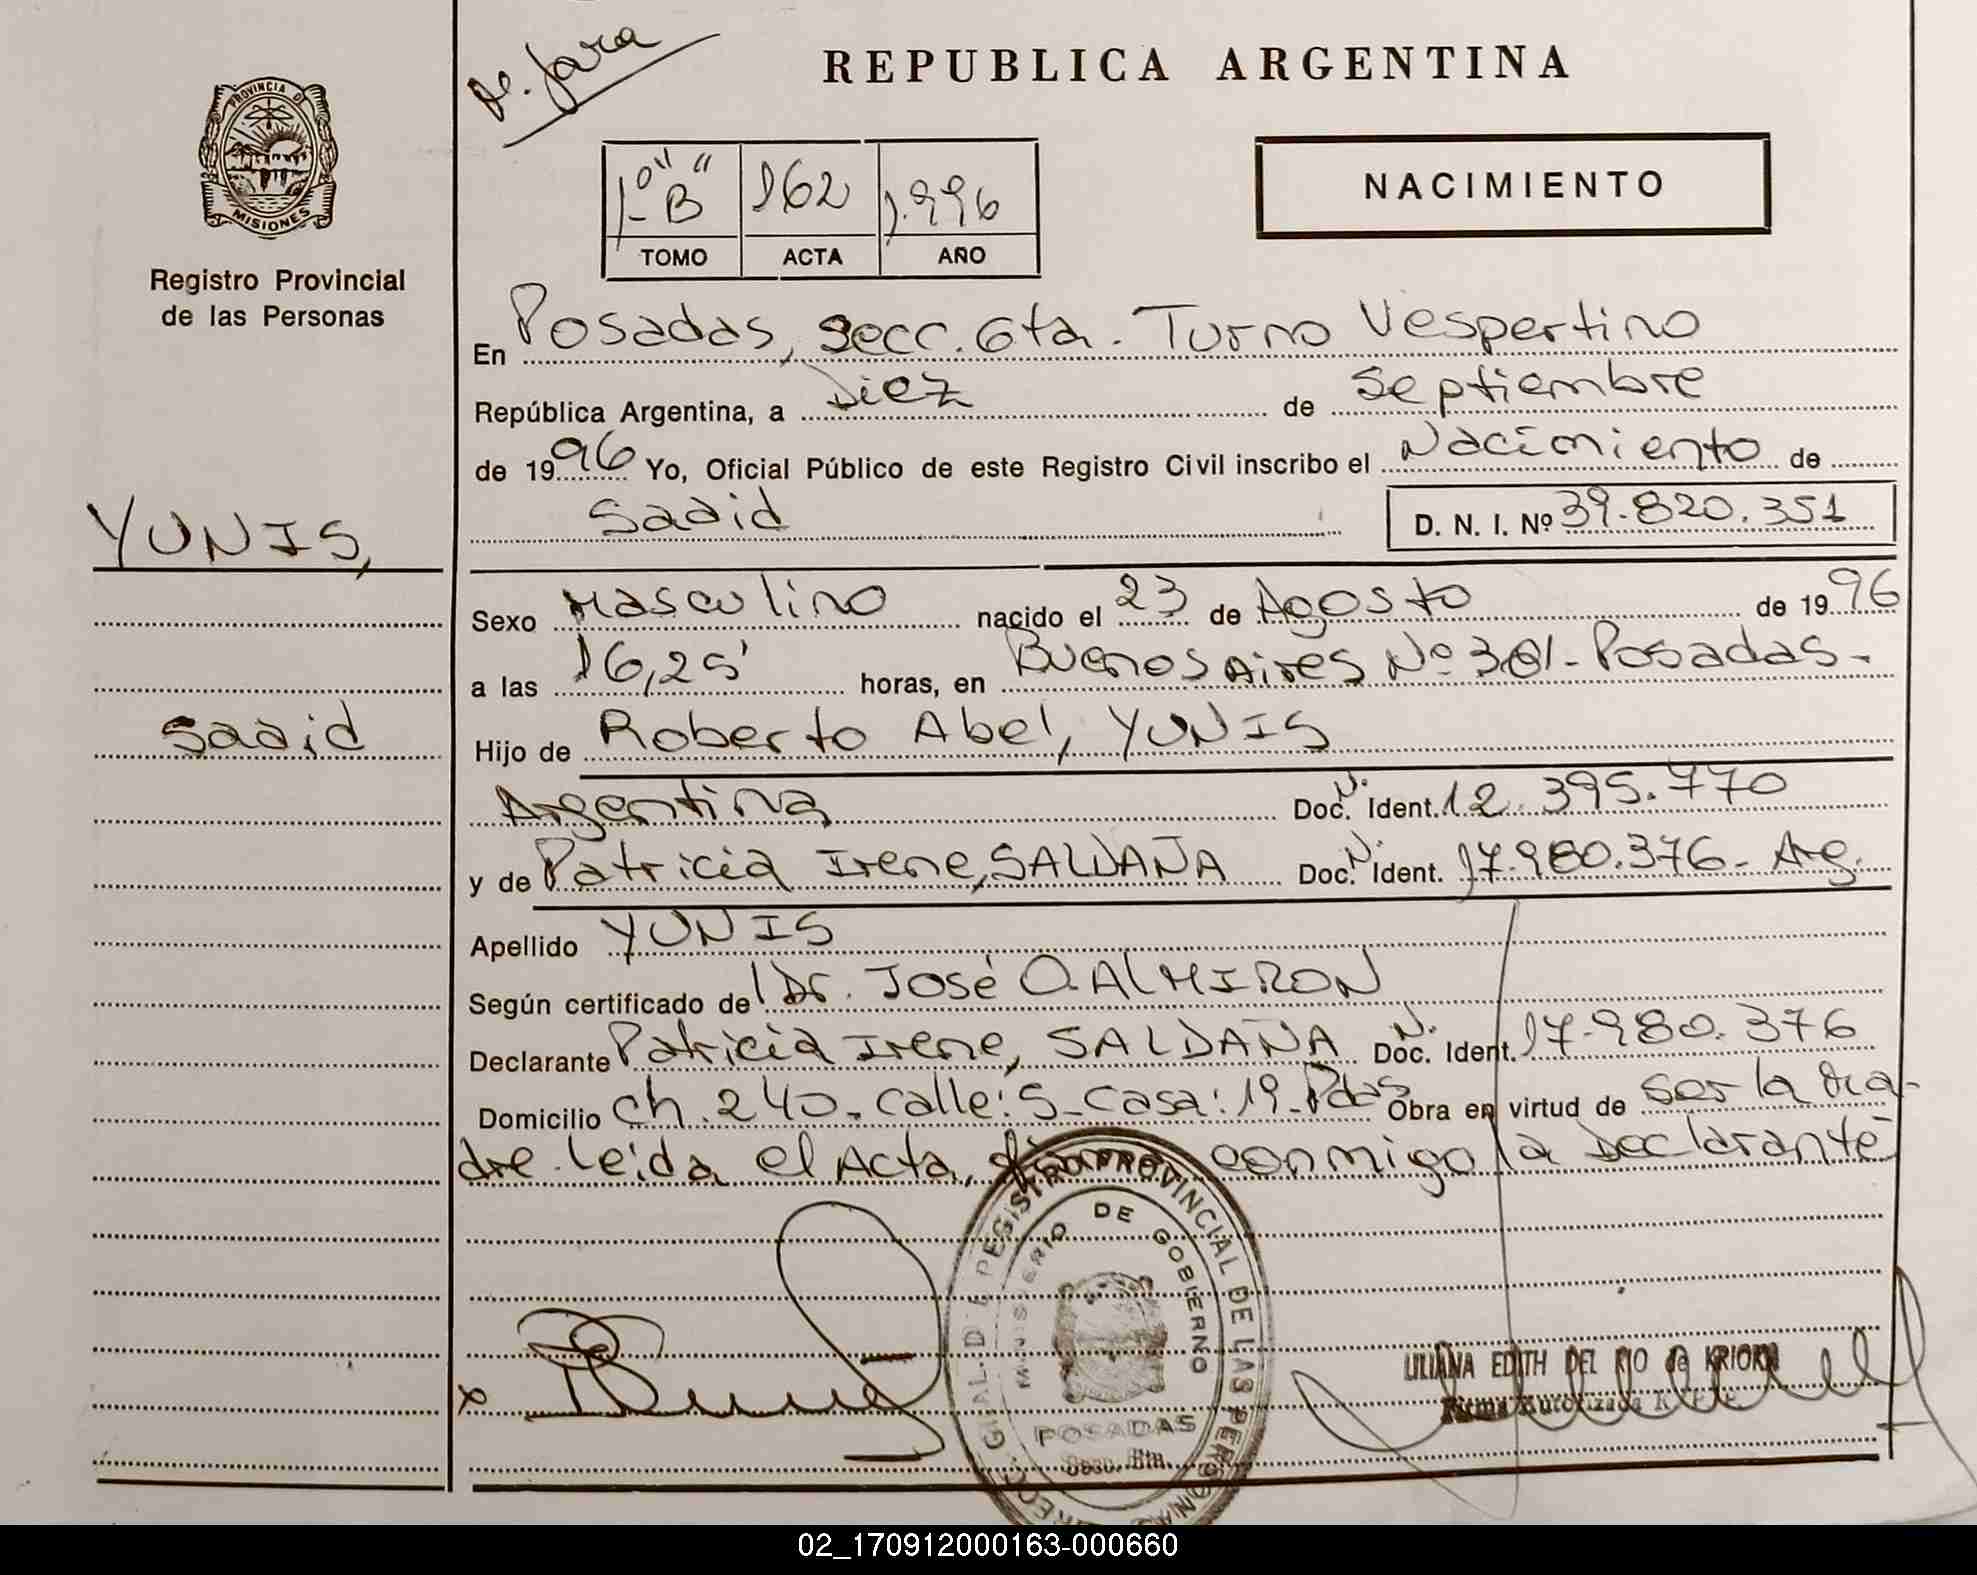 de. Jara
REPUBLICA ARGENTINA
PROVINCIA DE
MISIONES
Registro Provincial
de las Personas
1-º" "B" 162 1.996
TOMO ACTA AÑO
NACIMIENTO
En Posadas, Secc. 6ta. Turno Vespertino
República Argentina, a Diez de Septiembre
de 1996 Yo, Oficial Público de este Registro Civil inscribo el Nacimiento de
Saaid D. N. I. Nº 39.820.351
YUNIS,
Sexo Masculino nacido el 23 de Agosto de 1996
a las 16,25' horas, en Buenos Aires Nº 301- Posadas-
Saaid
Hijo de Roberto Abel, YUNIS
Argentina Doc. N. Ident. 12.395.770
y de Patricia Irene, SALDAÑA Doc. N. Ident. 17.980.376- Arg.
Apellido YUNIS
Según certificado del Dr. José O. ALMIRON
Declarante Patricia Irene, SALDAÑA Doc. N. Ident. 17.980.376
Domicilio Ch. 240. calle: 5- Casa: 19- Pdas Obra en virtud de ser la ma-
dre. Leida el Acta, conmigo la Declarante
REGISTRO PROVINCIAL DE LAS PERSONAS
MINISTERIO DE GOBIERNO
POSADAS
Secc. 6ta.
x
LILIANA EDITH DEL RIO de KRIORA
Firma Autorizada R. P. P.
02_170912000163-000660